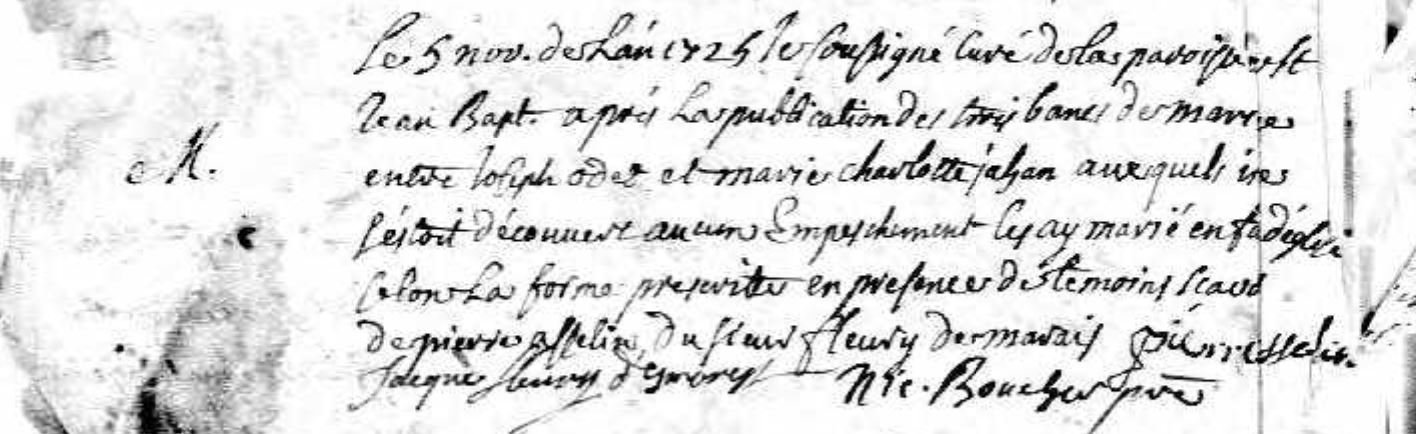 Le 5 nov. de Lán 1725 le soussigné Curé de la paroisse st
Jean Bapt. aprés La publication des trois bancs de mariage
M.
entre Joseph odet et marie charlotte jahan auxquels il ne
s'éstoit découvert aucun Empeschement les ay marié en église
selon La forme prescrite en presence des temoins scavoir
de pierre asselin, du sieur fleury de marais pierre esselin
Jacque fleury Nic. Boucher ptre